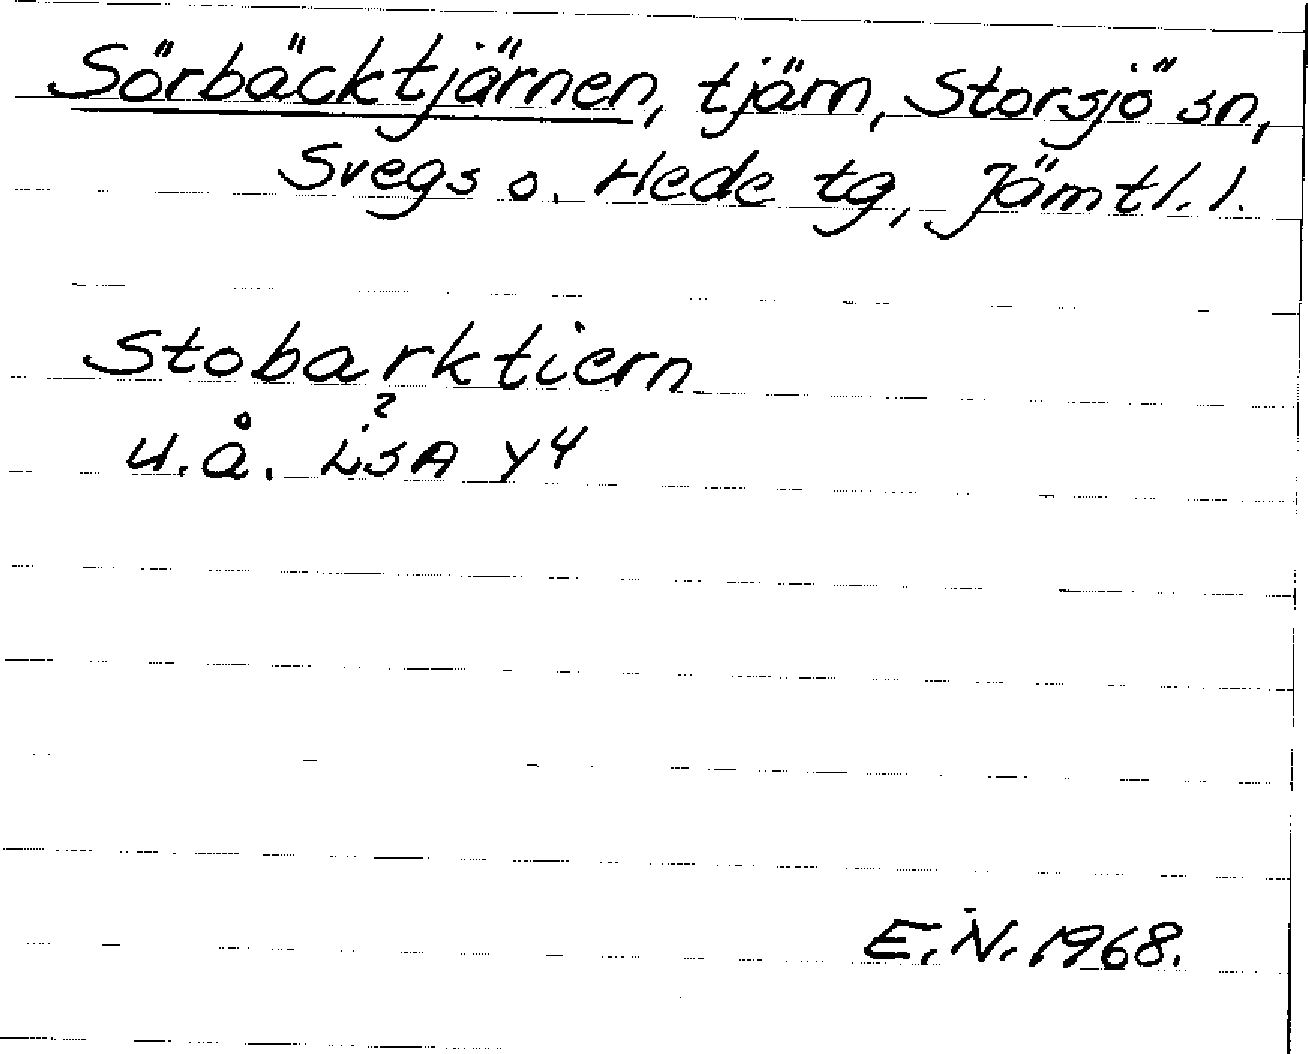 Sörbäcktjärnen, tjärn, Storsjö sn,
Svegs o. Hede tg, Jämtl. l.
Stobarktiern
?
u.å. LSA Y4
E.N. 1968.